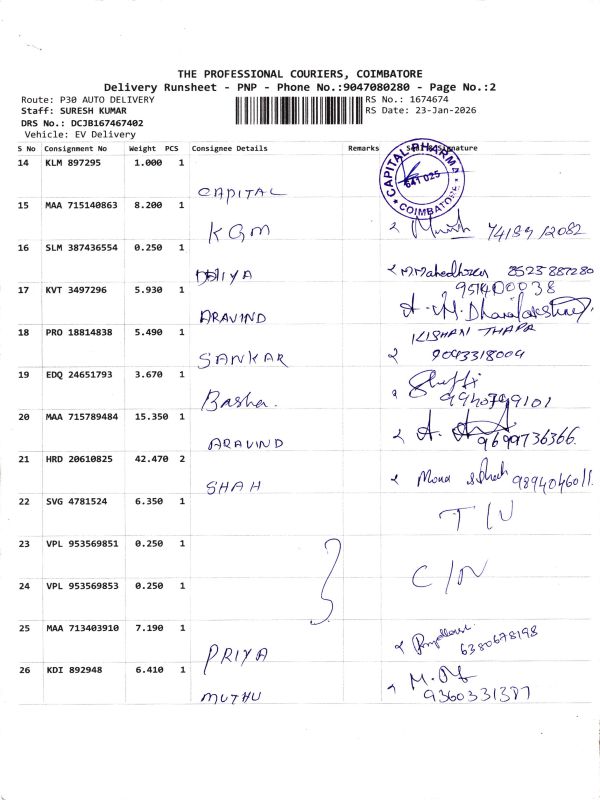 THE PROFESSIONAL COURIERS, COIMBATORE
Delivery Runsheet - PNP - Phone No.:9047080280 - Page No.:2
Route: P30 AUTO DELIVERY
RS No.: 1674674
Staff: SURESH KUMAR
RS Date: 23-Jan-2026
DRS No.: DCJB167467402
Vehicle: EV Delivery
S No Consignment No Weight PCS Consignee Details Remarks Seal & Signature
14 KLM 897295 1.000 1 CAPITAL
CAPITAL PHARMA
641 025
COIMBATORE
15 MAA 715140863 8.200 1 KGM
16 SLM 387436554 0.250 1 PRIYA 8523887280
17 KVT 3497296 5.930 1 ARAVIND
18 PRO 18814838 5.490 1 SANKAR
KISHAN THAPA
9043318004
19 EDQ 24651793 3.670 1 Basha.
20 MAA 715789484 15.350 1 ARAVIND
9699736366.
21 HRD 20610825 42.470 2 SHAH
9894046011.
22 SVG 4781524 6.350 1
23 VPL 953569851 0.250 1 C/N
24 VPL 953569853 0.250 1
25 MAA 713403910 7.190 1 PRIYA
6380678198
26 KDI 892948 6.410 1 MUTHU
9360331387